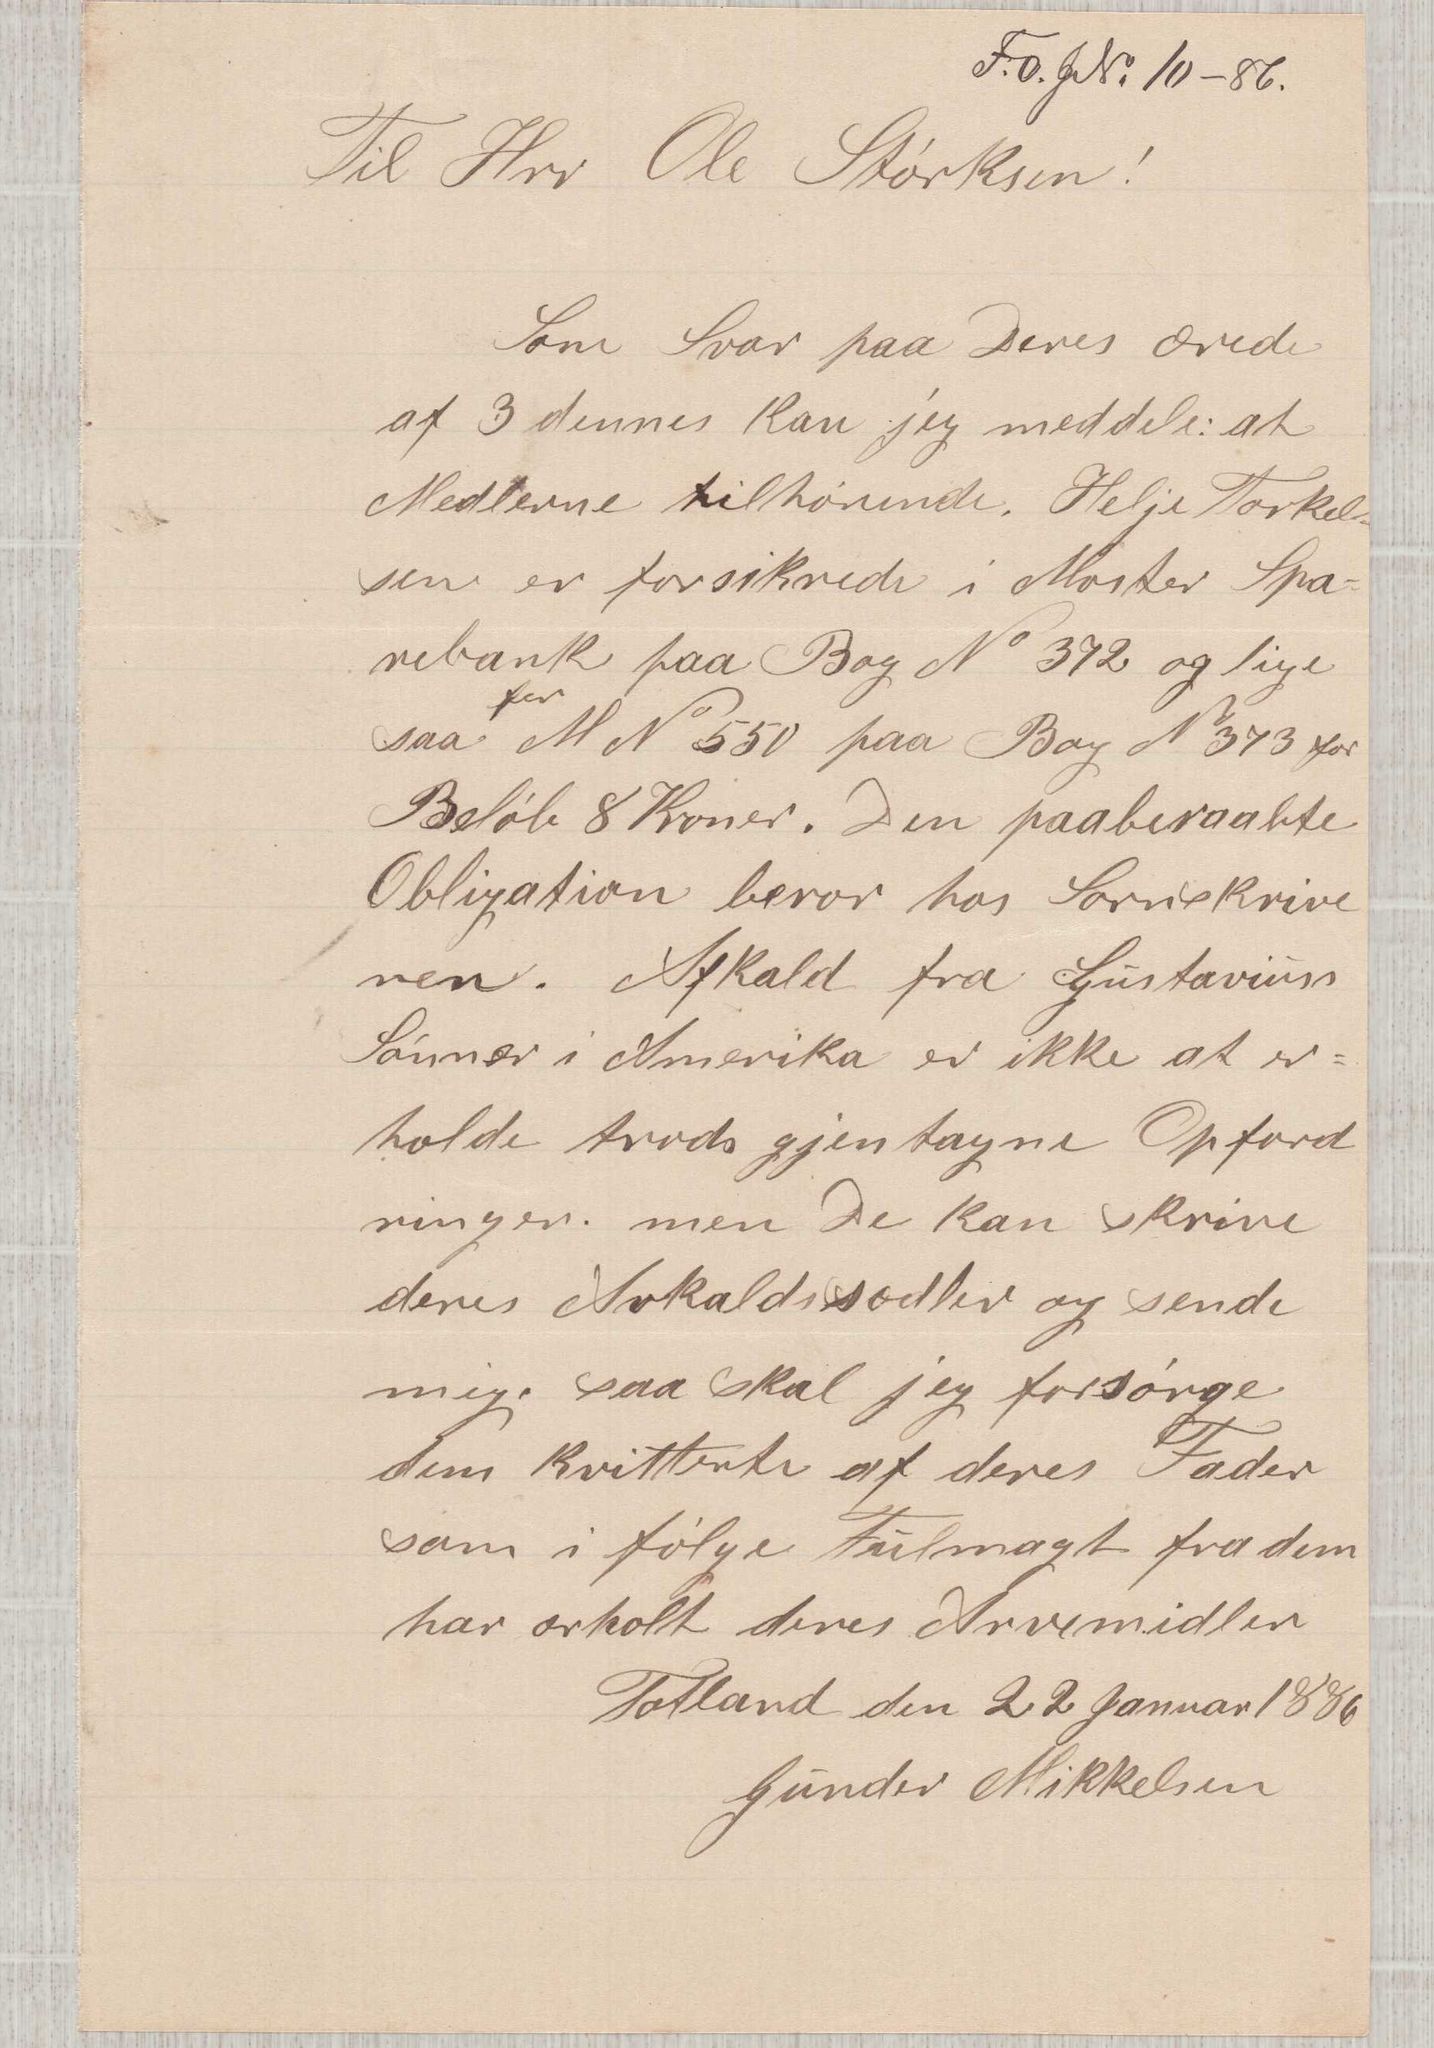 F.O. JNo. 10-86.
Til Hrr Ole Störksen!
Som Svar paa Deres ærede
af 3 dennes kan jeg meddele: at
Medlerne tilhörende. Helje Torkel-
sen er forsikrede i Moster Spa=
rebank paa Bog No 372 og lige
saa for M No 550 paa Bog No 373 for
Belöb 8 Kroner. Den paaberaabte
Obligation beror hos Sornskrive
ren. Afkald fra Gustaviuss
Sönner i Amerika er ikke at er=
holde trods gjentagne Opford
ringer. men De kan skrive
deres Avkaldssædler og sende
mig. saa skal jeg forsörge
dem kvitterte af deres Fader
som i fölge Fulmagt fra dem
har erholt deres Arvemidler
Totland den 22 Januar 1886
Gunder Mikkelsen